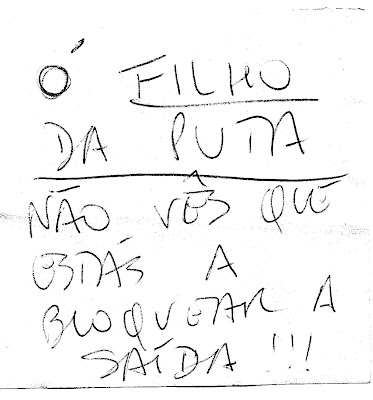 Ó FILHO
DA PUTA
NÃO VÊS QUE
ESTÁS A
BLOQUEAR A
SAÍDA !!!